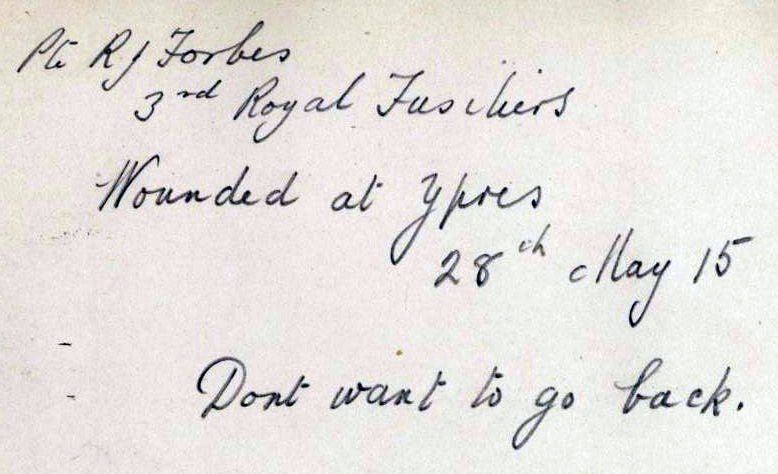 Pte R J Forbes
3rd Royal Fusiliers
Wounded at Ypres
28th May 15
Dont want to go back.